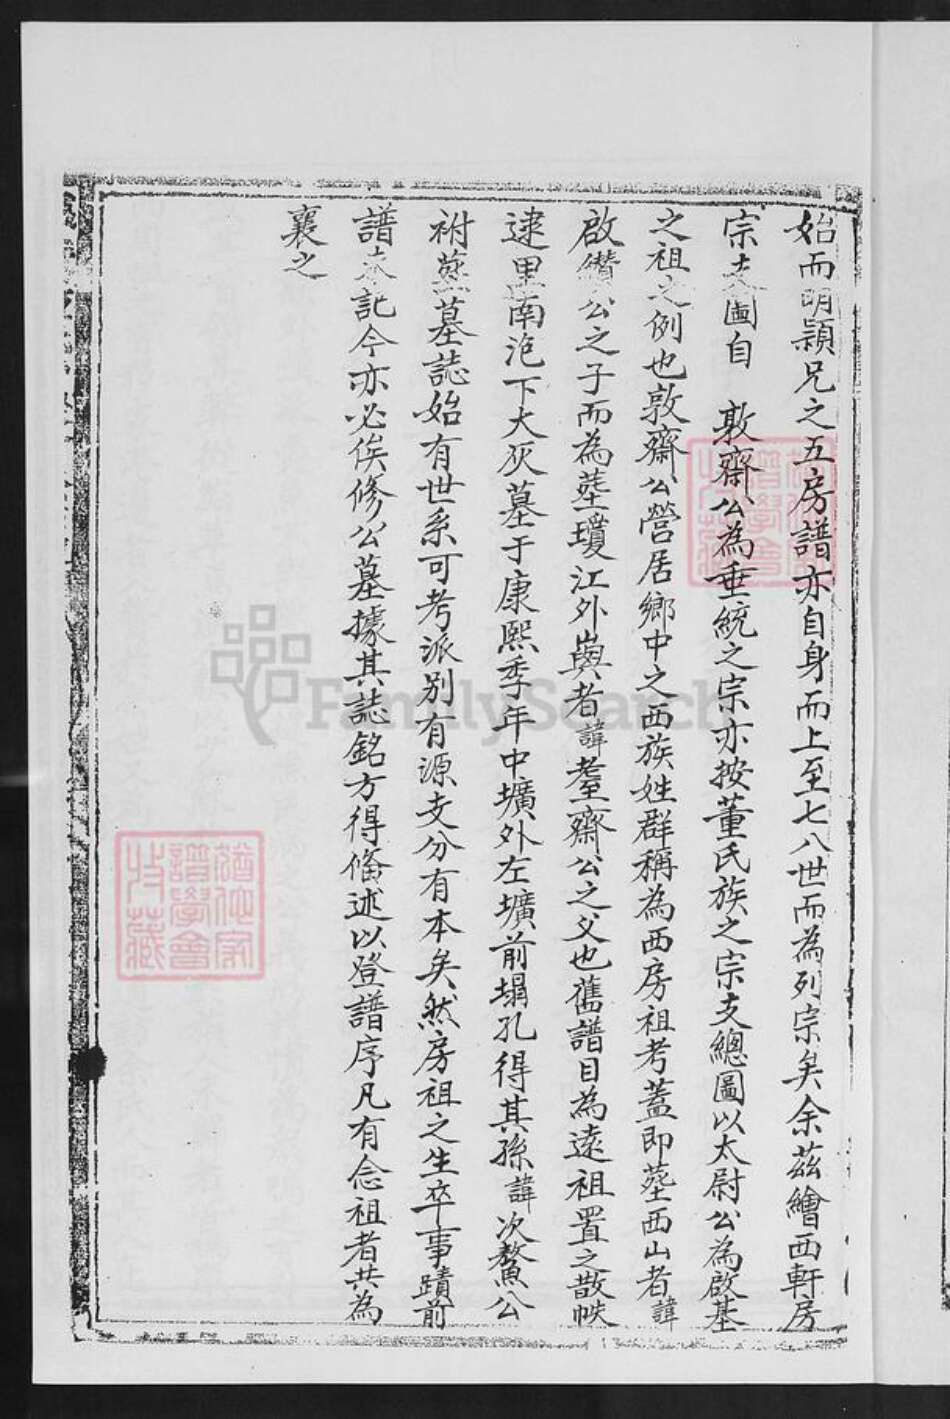 始而明穎兄之五房譜亦自身而上至七八世而為列宗矣余茲繪西軒房
宗支圖自　敦齋公為垂統之宗亦按董氏族之宗支總圖以太尉公為啟基
之祖之例也敦齋公營居鄉中之西族姓群稱為西房祖考蓋即塟西山者諱
啟纘公之子而為塟瓊江外嶼者諱耋齋公之父也舊譜目為遠祖置之散帙
逮里南泡下大灰墓于康熙季年中壙外左壙前塌孔得其孫諱次鰲公
祔塟墓誌始有世系可考派別有源支分有本矣然房祖之生卒事蹟前
譜未記今亦必俟修公墓據其誌銘方得俻述以登譜序凡有念祖者共為
襄之
譜學會
收藏
FamilySearch